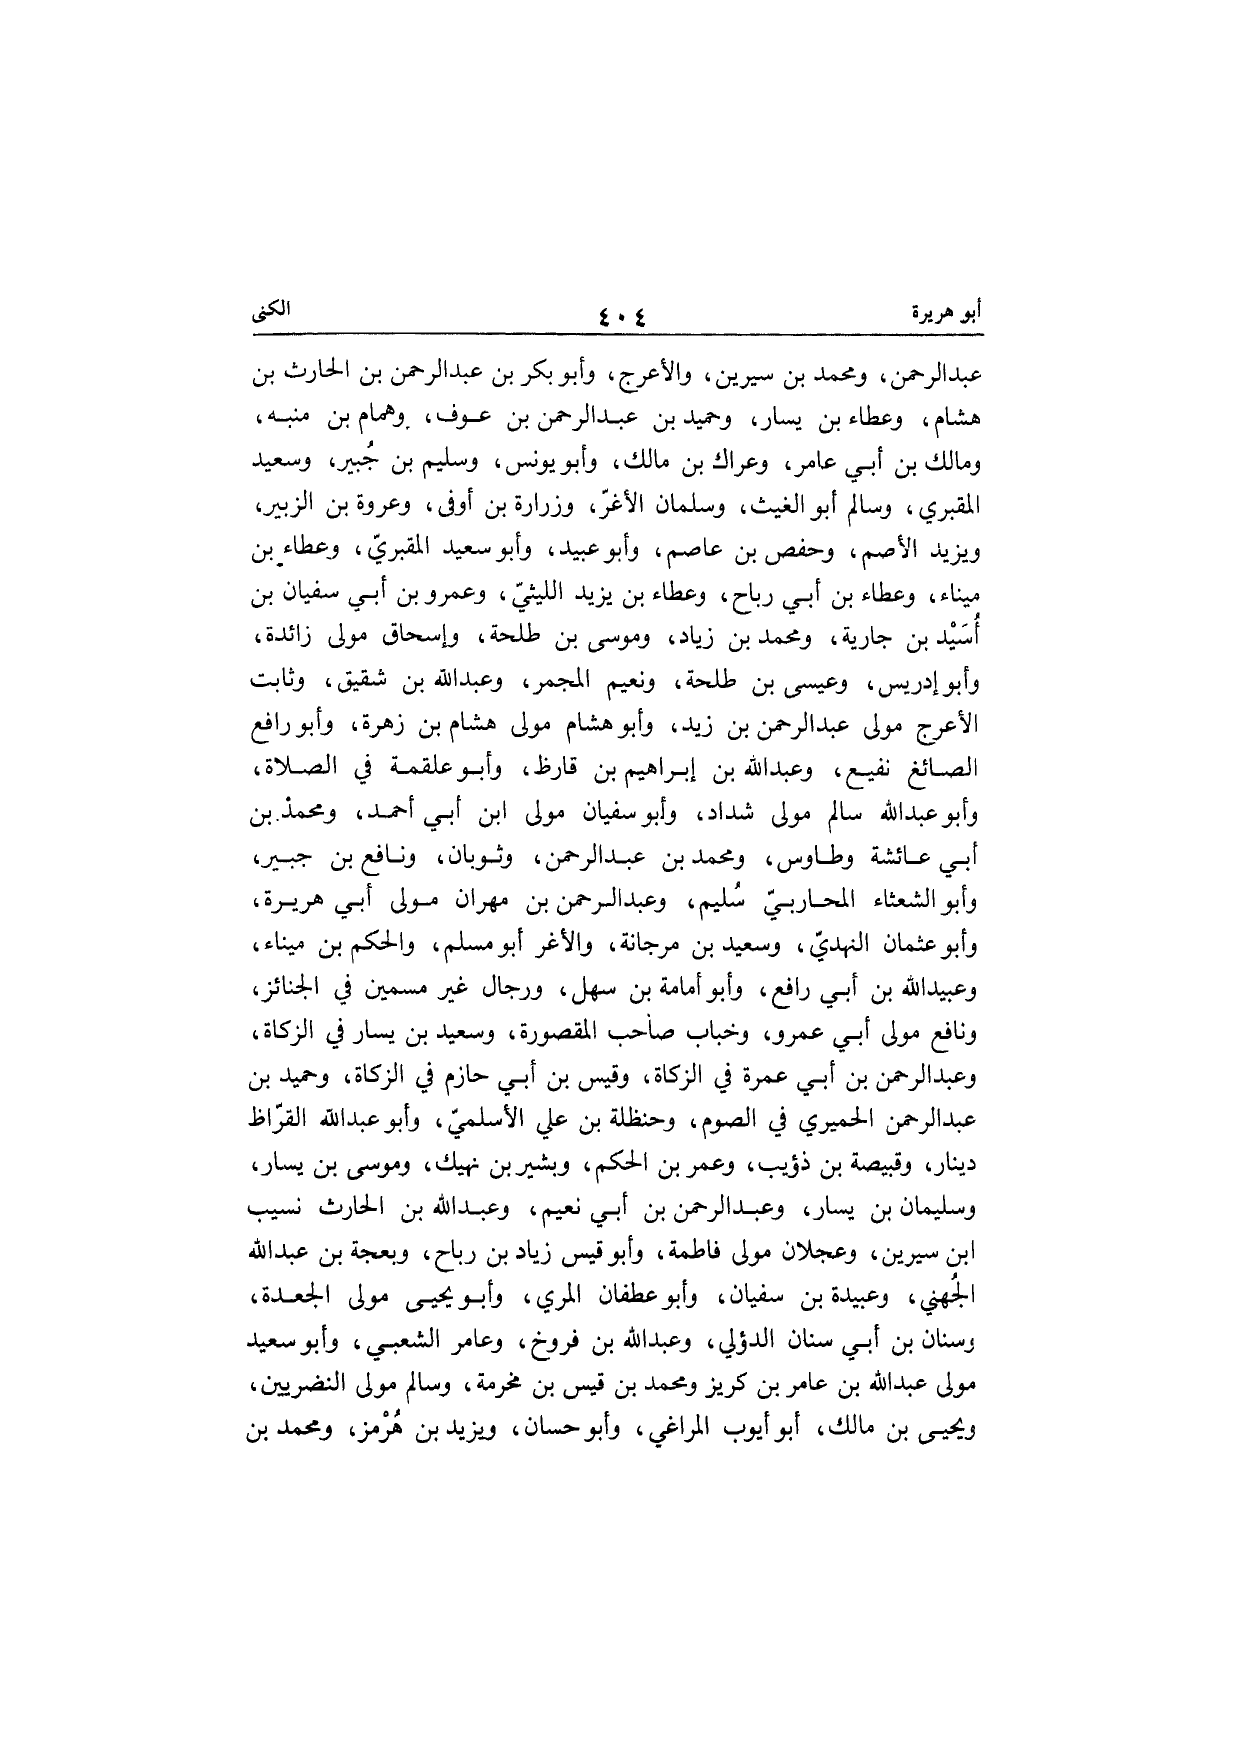 أبو هريرة ٤٠٤ الكنى
عبدالرحمن، ومحمد بن سيرين، والأعرج، وأبو بكر بن عبدالرحمن بن الحارث بن
هشام، وعطاء بن يسار، وحميد بن عبدالرحمن بن عوف، وهمام بن منبه،
ومالك بن أبي عامر، وعراك بن مالك، وأبو يونس، وسليم بن جُبير، وسعيد
المقبري، وسالم أبو الغيث، وسلمان الأغرّ، وزرارة بن أوفى، وعروة بن الزبير،
ويزيد الأصم، وحفص بن عاصم، وأبو عبيد، وأبو سعيد المقبريّ، وعطاء بن
ميناء، وعطاء بن أبي رباح، وعطاء بن يزيد الليثيّ، وعمرو بن أبي سفيان بن
أُسَيْد بن جارية، ومحمد بن زياد، وموسى بن طلحة، وإسحاق مولى زائدة،
وأبو إدريس، وعيسى بن طلحة، ونعيم المجمر، وعبدالله بن شقيق، وثابت
الأعرج مولى عبدالرحمن بن زيد، وأبو هشام مولى هشام بن زهرة، وأبو رافع
الصائغ نفيع، وعبدالله بن إبراهيم بن قارظ، وأبو علقمة في الصلاة،
وأبو عبدالله سالم مولى شداد، وأبو سفيان مولى ابن أبي أحمد، ومحمد بن
أبي عائشة وطاوس، ومحمد بن عبدالرحمن، وثوبان، ونافع بن جبير،
وأبو الشعثاء المحاربيّ سُليم، وعبدالرحمن بن مهران مولى أبي هريرة،
وأبو عثمان النهديّ، وسعيد بن مرجانة، والأغر أبو مسلم، والحكم بن ميناء،
وعبيدالله بن أبي رافع، وأبو أمامة بن سهل، ورجال غير مسمين في الجنائز،
ونافع مولى أبي عمرو، وخباب صاحب المقصورة، وسعيد بن يسار في الزكاة،
وعبدالرحمن بن أبي عمرة في الزكاة، وقيس بن أبي حازم في الزكاة، وحميد بن
عبدالرحمن الحميري في الصوم، وحنظلة بن علي الأسلميّ، وأبو عبدالله القرّاظ
دينار، وقبيصة بن ذؤيب، وعمر بن الحكم، وبشير بن نهيك، وموسى بن يسار،
وسليمان بن يسار، وعبدالرحمن بن أبي نعيم، وعبدالله بن الحارث نسيب
ابن سيرين، وعجلان مولى فاطمة، وأبو قيس زياد بن رباح، وبعجة بن عبدالله
الجُهني، وعبيدة بن سفيان، وأبو عطفان المري، وأبو يحيى مولى الجعدة،
وسنان بن أبي سنان الدؤلي، وعبدالله بن فروخ، وعامر الشعبي، وأبو سعيد
مولى عبدالله بن عامر بن كريز ومحمد بن قيس بن مخرمة، وسالم مولى النضريين،
ويحيى بن مالك، أبو أيوب المراغي، وأبو حسان، ويزيد بن هُرْمز، ومحمد بن